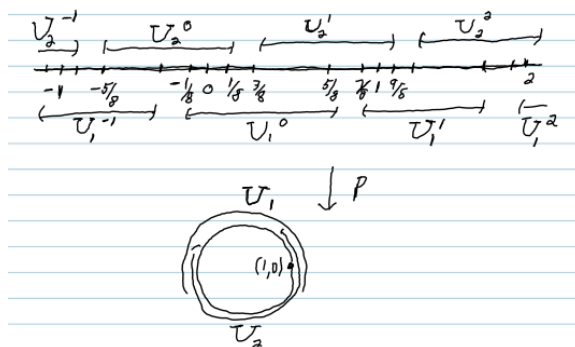 U₂⁻¹ U₂⁰ U₂¹ U₂²
-1 -5/8 -1/8 0 1/8 3/8 5/8 7/8 1 9/8 2
U₁⁻¹ U₁⁰ U₁¹ U₁²
U₁ p
(1,0)
U₂